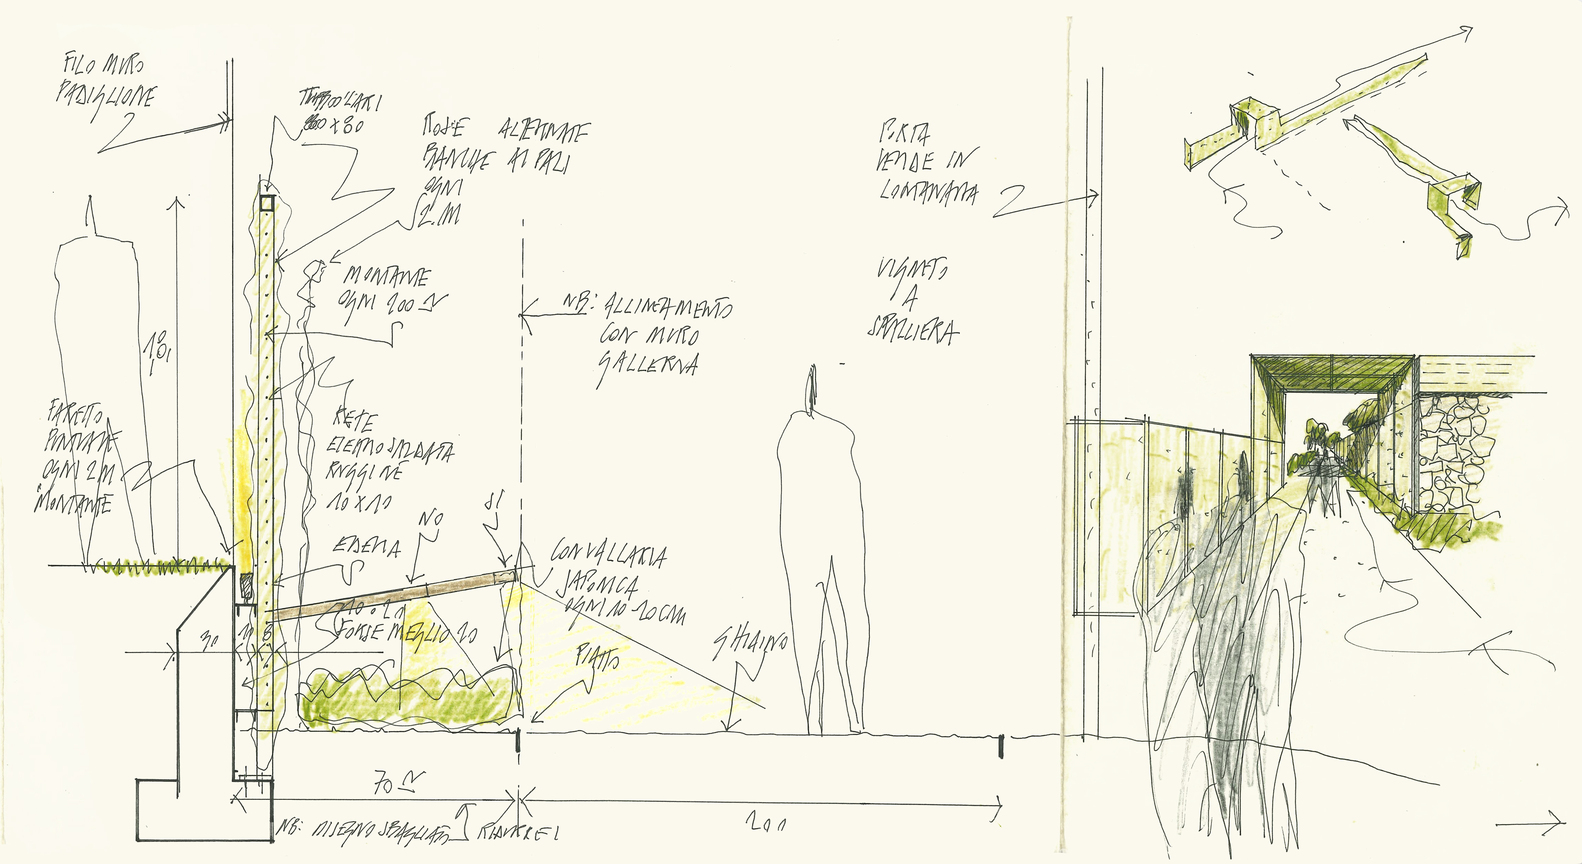 FILO MURO
PADIGLIONE
TUBOLARI
80 x 80
ROSE ALTERNATE
BANCHE AI PALI
OGNI
2.M
MONTANTE
OGNI 200
NB: ALLINEAMENTO
CON MURO
GALLERNA
PORTA
VERDE IN
LONTANANZA
VIGNETO
A
SPALLIERA
180
FARETTO
PUNTUALE
OGNI 2M
MONTANTE
RETE
ELETTROSALDATA
RUGGINE
10 x 10
EDERA
NO
SI
CONVALLARIA
JAPONICA
OGNI 10-20CM
30
10
8
FORSE MEGLIO 20
PIATTO
GHIAINO
70
200
NB: DISEGNO SBAGLIATO